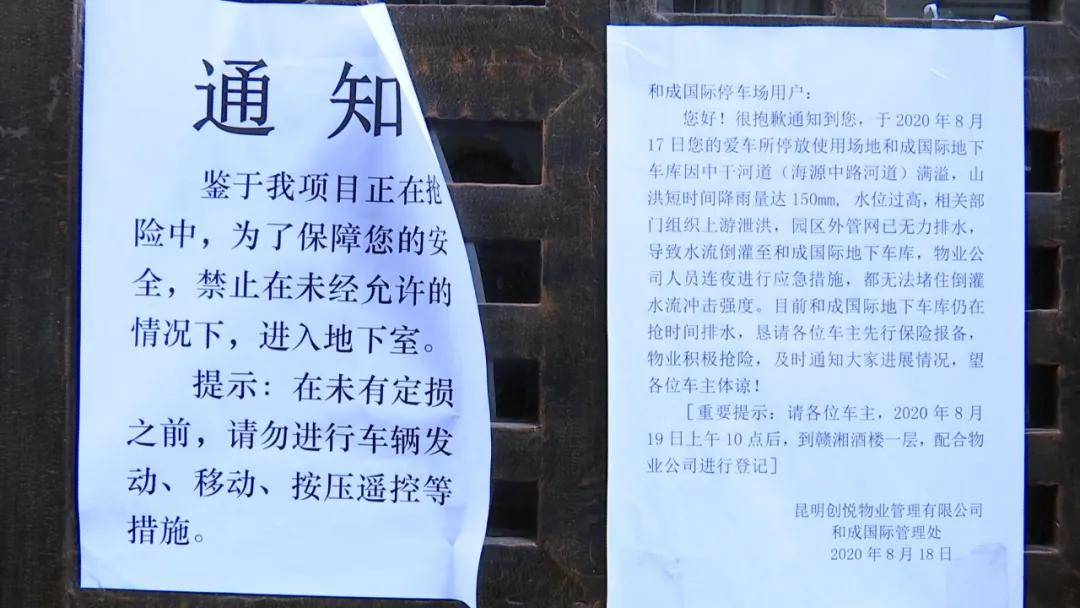 通知
鉴于我项目正在抢
险中，为了保障您的安
全，禁止在未经允许的
情况下，进入地下室。
提示：在未有定损
之前，请勿进行车辆发
动、移动、按压遥控等
措施。
和成国际停车场用户：
您好！很抱歉通知到您，于 2020 年 8 月
17 日您的爱车所停放使用场地和成国际地下
车库因中干河道（海源中路河道）满溢，山
洪短时间降雨量达 150mm, 水位过高，相关部
门组织上游泄洪，园区外管网已无力排水，
导致水流倒灌至和成国际地下车库，物业公
司人员连夜进行应急措施，都无法堵住倒灌
水流冲击强度。目前和成国际地下车库仍在
抢时间排水，恳请各位车主先行保险报备，
物业积极抢险，及时通知大家进展情况，望
各位车主体谅！
[重要提示：请各位车主，2020 年 8 月
19 日上午 10 点后，到赣湘酒楼一层，配合物
业公司进行登记]
昆明创悦物业管理有限公司
和成国际管理处
2020 年 8 月 18 日